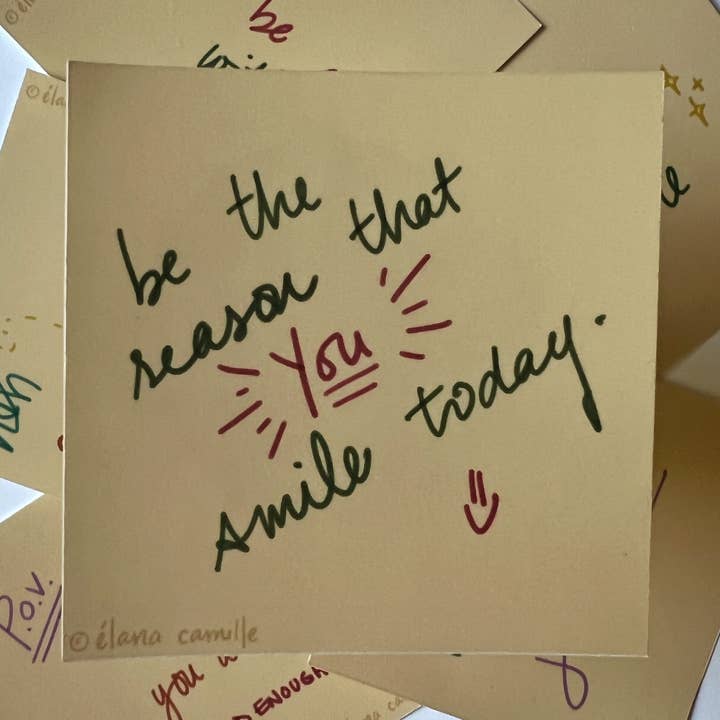 be
© éla
be the
reason that
You
smile today.
© élana camille
P.O.V.
you
ENOUGH